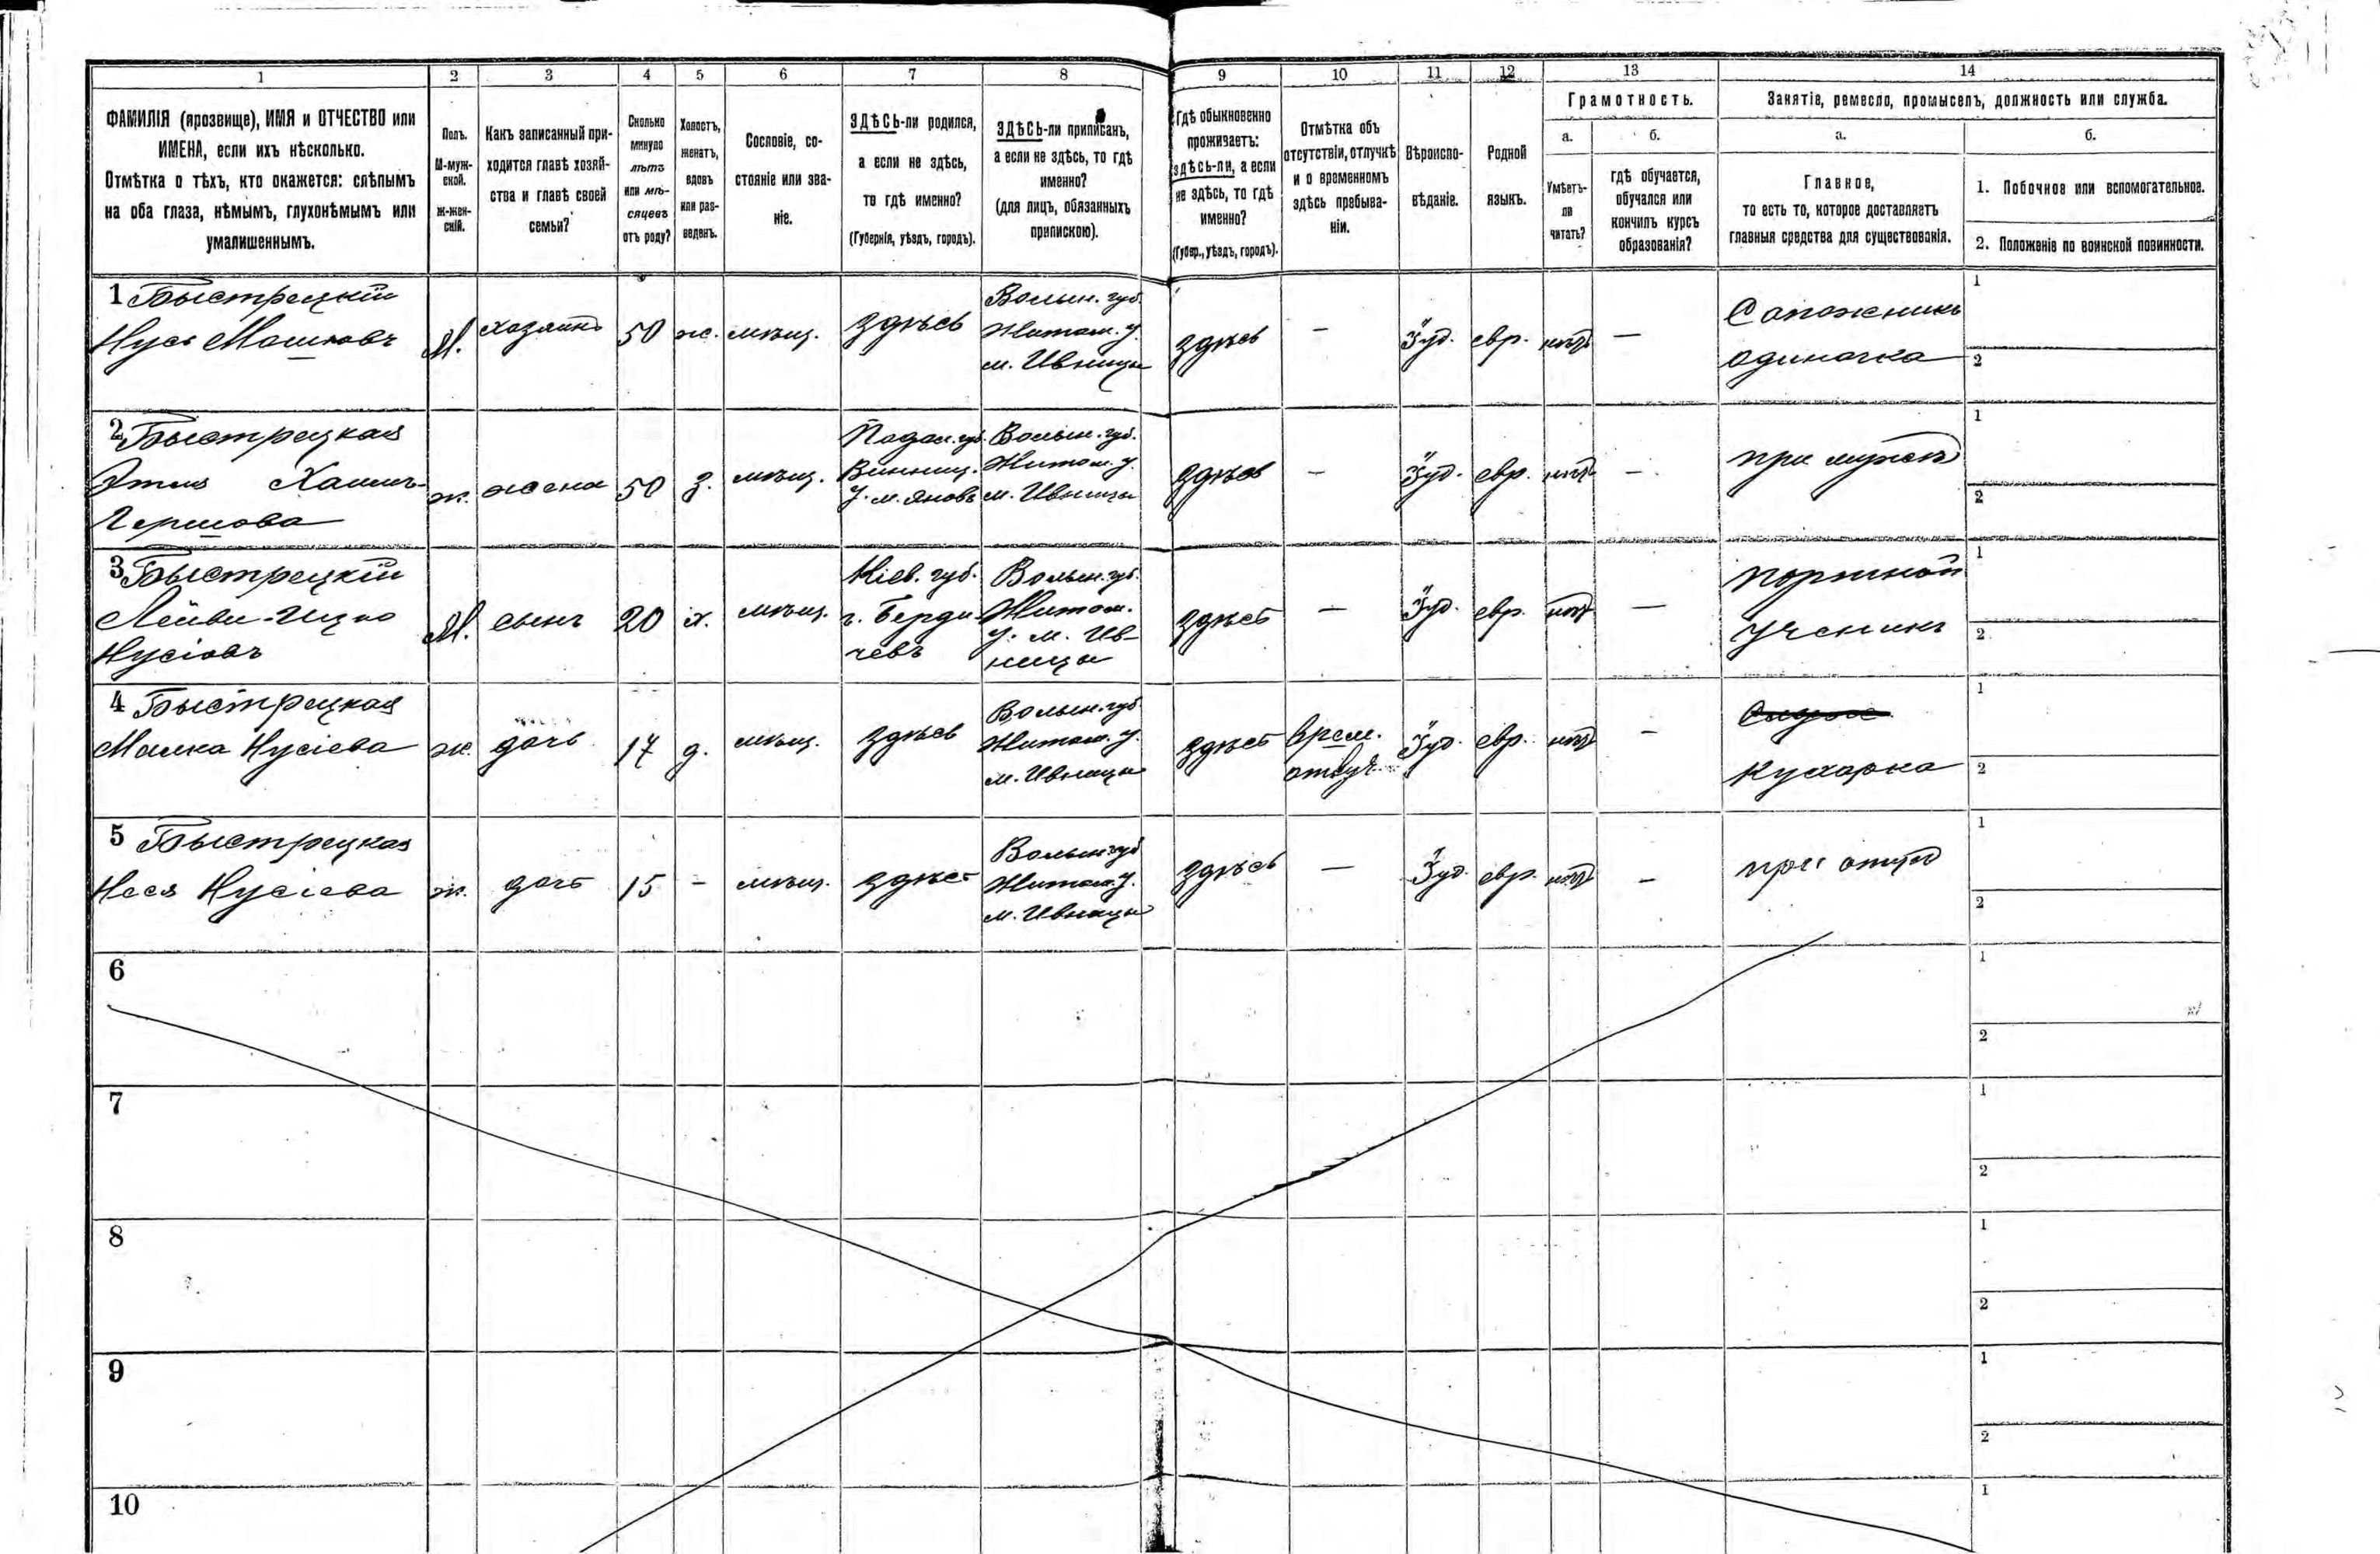 1 2 3 4 5 6 7 8 9 10 11 12 13 14
ФАМИЛІЯ (прозвище), ИМЯ и ОТЧЕСТВО или
ИМЕНА, если ихъ нѣсколько.
Отмѣтка о тѣхъ, кто окажется: слѣпымъ
на оба глаза, нѣмымъ, глухонѣмымъ или
умалишеннымъ.
Полъ.
М-муж-
ской.
Ж-жен-
скій.
Какъ записанный при-
ходится главѣ хозяй-
ства и главѣ своей
семьи?
Сколько
минуло
лѣтъ
или мѣ-
сяцевъ
отъ роду?
Холостъ,
женатъ,
вдовъ
или раз-
веденъ.
Сословіе, со-
стояніе или зва-
ніе.
ЗДѢСЬ-ли родился,
а если не здѣсь,
то гдѣ именно?
(Губернія, уѣздъ, городъ).
ЗДѢСЬ-ли приписанъ,
а если не здѣсь, то гдѣ
именно?
(для лицъ, обязанныхъ
припискою).
Гдѣ обыкновенно
проживаетъ:
здѣсь-ли, а если
не здѣсь, то гдѣ
именно?
(Губер., уѣздъ, городъ).
Отмѣтка объ
отсутствіи, отлучкѣ
и о временномъ
здѣсь пребыва-
ніи.
Вѣроиспо-
вѣданіе.
Родной
языкъ.
Грамотность.
а.
Умѣетъ-
ли
читать?
б.
гдѣ обучается,
обучался или
кончилъ курсъ
образованія?
Занятіе, ремесло, промыселъ, должность или служба.
а.
Главное,
то есть то, которое доставляетъ
главныя средства для существованія.
б.
1. Побочное или вспомогательное.
2. Положеніе по воинской повинности.
1 Быстрецкій
Нусь Мошковъ
М.
хозяинъ
50
ж.
мѣщ.
здѣсь
Волын. губ.
Житом. у.
м. Ивницы
здѣсь
—
Іуд.
евр.
нѣтъ
—
Сапожникъ
одиночка
1
2
2 Быстрецкая
Этля Хаимъ-
Гершова
ж.
жена
50
з.
мѣщ.
Подол. губ.
Винниц.
у. м. Яновъ
Волын. губ.
Житом. у.
м. Ивницы
здѣсь
—
Іуд.
евр.
нѣтъ
—
при мужѣ
1
2
3 Быстрецкій
Лейви-Ицко
Нусіовъ
М.
сынъ
20
х.
мѣщ.
Кіев. губ.
г. Берди-
чевъ
Волын. губ.
Житом.
у. м. Ив-
ницы
здѣсь
—
Іуд.
евр.
нѣтъ
—
портной
ученикъ
1
2
4 Быстрецкая
Малка Нусіева
ж.
дочь
17
д.
мѣщ.
здѣсь
Волын. губ.
Житом. у.
м. Ивницы
здѣсь
врем.
отлуч.
Іуд.
евр.
нѣтъ
—
кухарка
1
2
5 Быстрецкая
Неся Нусіева
ж.
дочь
15
—
мѣщ.
здѣсь
Волын. губ
Житом. у.
м. Ивницы
здѣсь
—
Іуд.
евр.
нѣтъ
—
при отцѣ
1
2
6
1
2
7
1
2
8
1
2
9
1
2
10
1